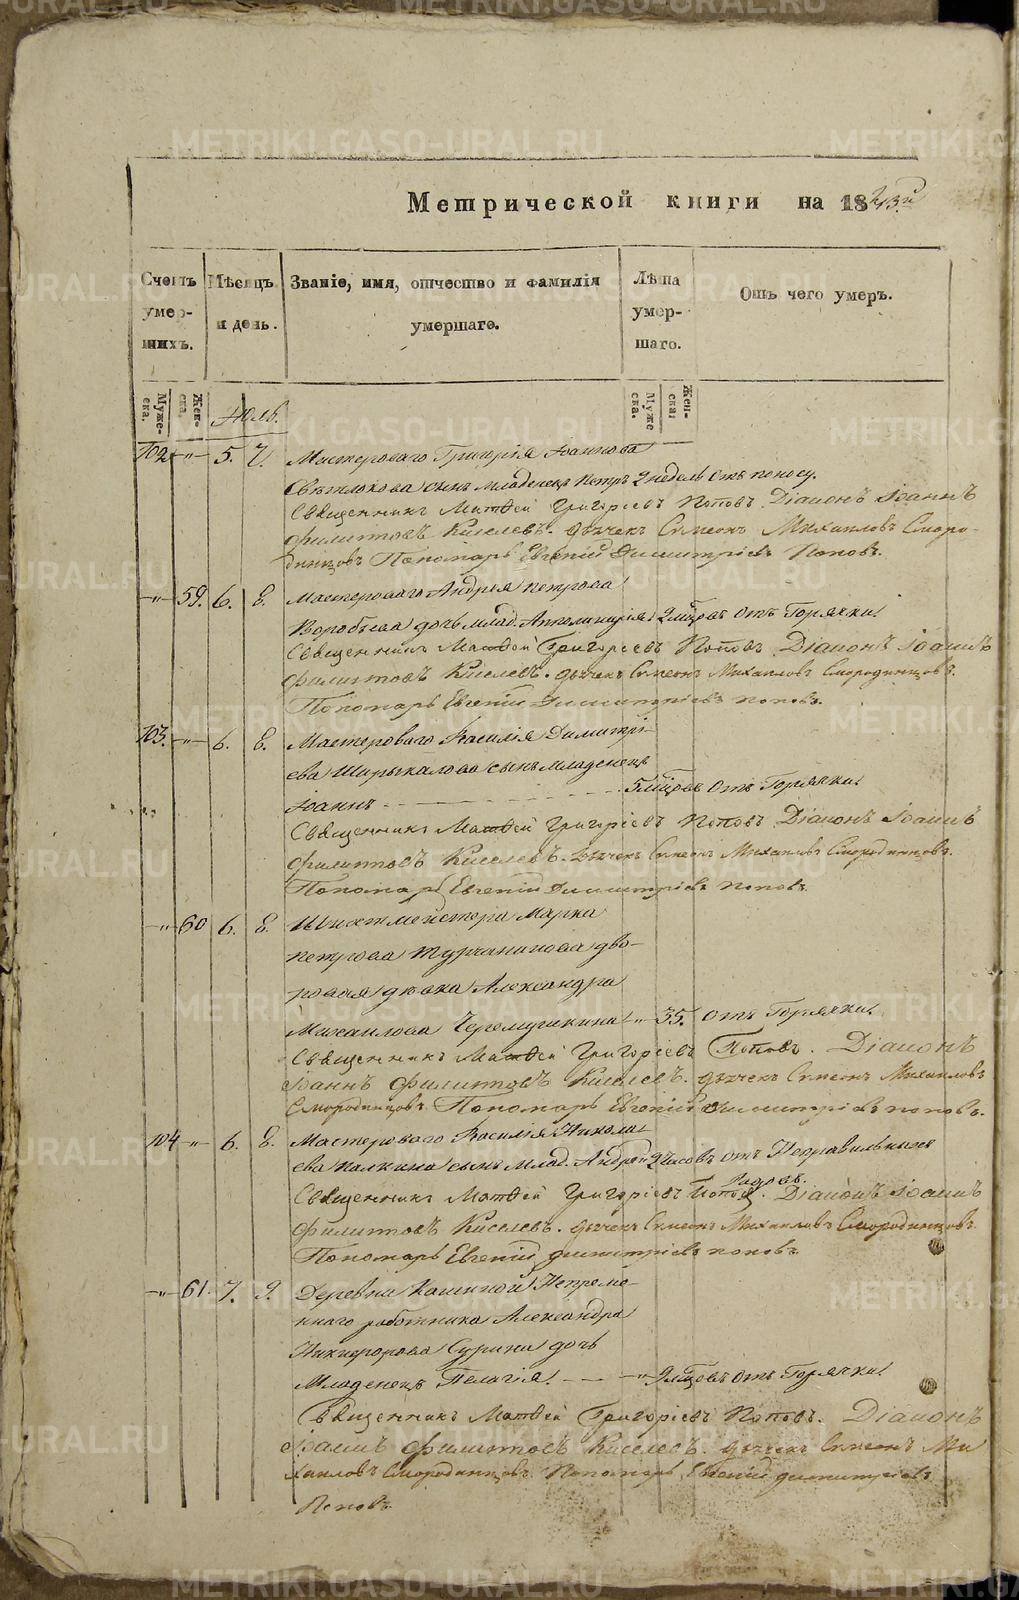 Метрической книги на 1843й
Счетъ умер-шихъ.
Мѣсяцъ и день.
Званіе, имя, отчество и фамилія умершаго.
Лѣта умер-шаго.
Отъ чего умеръ.
Муже-ска.
Жен-ска.
Муже-ска.
Жен-ска.
Іюль.
102 -"- 5. 7. Мастероваго Григорія Іоаннова
Свѣтлокова сынъ младенецъ Петръ 2 недель Отъ поносу.
Священникъ Матѳей Григорьевъ Поповъ. Діаконъ Іоаннъ
Филиповъ Киселевъ. дьячекъ Симеонъ Михаиловъ Сморо-
динцовъ Пономарь Евгеній Димитріевъ Поповъ.
-"- 59. 6. 8. Мастероваго Андрея Петрова
Воробьева дочь млад. Апполинарія 2 мѣсяц. Отъ Горячки.
Священникъ Матѳей Григорьевъ Поповъ Діаконъ Іоаннъ
Филиповъ Киселевъ. дьячекъ Симеонъ Михаиловъ Смородинцовъ.
Пономарь Евгеній Димитріевъ поповъ.
103. -"- 6. 8. Мастероваго Василія Димитрі-
ева Ширыкалова сынъ младенецъ
Іоаннъ 5 мѣсяц. Отъ Горячки.
Священникъ Матѳей Григоріевъ Поповъ Діаконъ Іоаннъ
Филиповъ Киселевъ. дьячекъ Симеонъ Михаиловъ Смородинцовъ.
Пономарь Евгеній Димитріевъ поповъ.
-"- 60 6. 8. Шихтмейстера Марка
Петрова Турчанинова дво-
ровая дѣвка Александра
Михаилова Черемушкина -"- 35. Отъ Горячки.
Священникъ Матѳей Григоріевъ Поповъ. Діаконъ
Іоаннъ Филиповъ Киселевъ. дьячекъ Симеонъ Михаиловъ
Смородинцовъ Пономарь Евгеній Димитріевъ поповъ.
104 -"- 6. 8. Мастероваго Василія Никола-
ева Палкина сынъ Млад. Андрей 2 часовъ Отъ Неправильныхъ
родовъ.
Священникъ Матѳей Григоріевъ Поповъ. Діаконъ Іоаннъ
Филиповъ Киселевъ. дьячекъ Симеонъ Михаиловъ Смородинцовъ.
Пономарь Евгеній димитріевъ поповъ
-"- 61. 7. 9. Деревни Кашиной Непреме-
ннаго работника Александра
Никифорова Сурина дочь
Младенецъ Пелагія. -"- 9 мѣсяц. Отъ Горячки.
Священникъ Матѳей Григоріевъ Поповъ. Діаконъ
Іоаннъ Филиповъ Киселевъ. дьячекъ Симеонъ Ми
хаиловъ Смородинцовъ Пономарь Евгеній димитріевъ
Поповъ.
METRIKI.GASO-URAL.RU